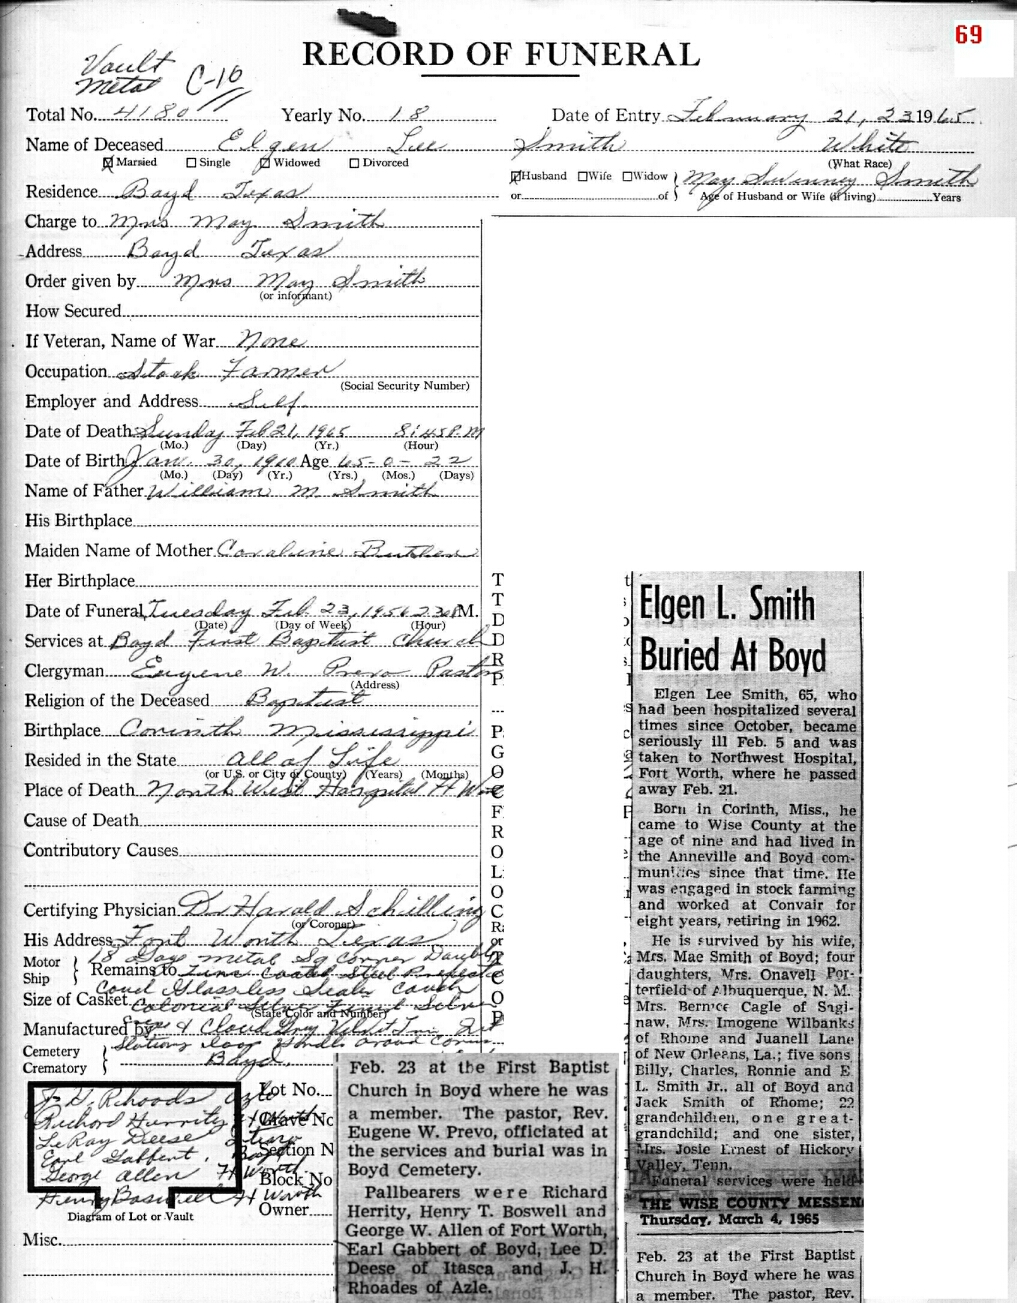 69
RECORD OF FUNERAL
Vault
Metal C-10
Total No. 4180 Yearly No. 18 Date of Entry February 21, 23 1965
Name of Deceased Elgen Lee Smith White
Married Single Widowed Divorced (What Race)
Residence Boyd Texas
Husband Wife Widow } May Swinney Smith
or of Age of Husband or Wife (if living) Years
Charge to Mrs May Smith
Address Boyd Texas
Order given by Mrs May Smith
(or informant)
How Secured
If Veteran, Name of War None
Occupation Stock Farmer
(Social Security Number)
Employer and Address Self
Date of Death Sunday Feb 21, 1965 8:45 P.M
(Mo.) (Day) (Yr.) (Hour)
Date of Birth Jan. 30, 1900 Age 65-0-22
(Mo.) (Day) (Yr.) (Yrs.) (Mos.) (Days)
Name of Father William M. Smith
His Birthplace
Maiden Name of Mother Coraline
Her Birthplace
Date of Funeral Tuesday Feb. 23, 1956 2:30 P.M.
(Date) (Day of Week) (Hour)
Services at Boyd First Baptist Church
Clergyman Eugene W. Prevo Pastor
(Address)
Religion of the Deceased Baptist
Birthplace Corinth Mississippi
Resided in the State all of Life
(or U.S. or City or County) (Years) (Months)
Place of Death North West Hospital Ft Wor
Cause of Death
Contributory Causes
Certifying Physician Dr Harald Schilling
(or Coroner)
His Address Fort Worth Texas
Motor
Ship
18 Gage metal Sq Corner
Remains to Zinc Coated Steel
Glassless Sealer Couch
Size of Casket Colonial Silver
(State Color and Number)
Manufactured by
Cemetery
Crematory
Boyd
J. H. Rhoads Azle
Richard Herrity Ft Worth
LeRay Deese Itasca
Earl Gabbert, Boyd
George Allen Ft Worth
Henry Boswell Ft Worth
Lot No.
Grave No
Section N
Block No
Owner
Diagram of Lot or Vault
Misc.
Elgen L. Smith
Buried At Boyd
Elgen Lee Smith, 65, who
had been hospitalized several
times since October, became
seriously ill Feb. 5 and was
taken to Northwest Hospital,
Fort Worth, where he passed
away Feb. 21.
Born in Corinth, Miss., he
came to Wise County at the
age of nine and had lived in
the Anneville and Boyd com-
munities since that time. He
was engaged in stock farming
and worked at Convair for
eight years, retiring in 1962.
He is survived by his wife,
Mrs. Mae Smith of Boyd; four
daughters, Mrs. Onavell Por-
terfield of Albuquerque, N. M.
Mrs. Bernice Cagle of Sagi-
naw, Mrs. Imogene Wilbanks
of Rhome and Juanell Lane
of New Orleans, La.; five sons
Billy, Charles, Ronnie and E.
L. Smith Jr., all of Boyd and
Jack Smith of Rhome; 22
grandchildien, one great-
grandchild; and one sister,
Mrs. Josie Ernest of Hickory
Valley, Tenn.
Funeral services were held
THE WISE COUNTY MESSEN
Thursday, March 4, 1965
Feb. 23 at the First Baptist
Church in Boyd where he was
a member. The pastor, Rev.
Eugene W. Prevo, officiated at
the services and burial was in
Boyd Cemetery.
Pallbearers were Richard
Herrity, Henry T. Boswell and
George W. Allen of Fort Worth,
Earl Gabbert of Boyd, Lee D.
Deese of Itasca and J. H.
Rhoades of Azle.
Feb. 23 at the First Baptist
Church in Boyd where he was
a member. The pastor, Rev.